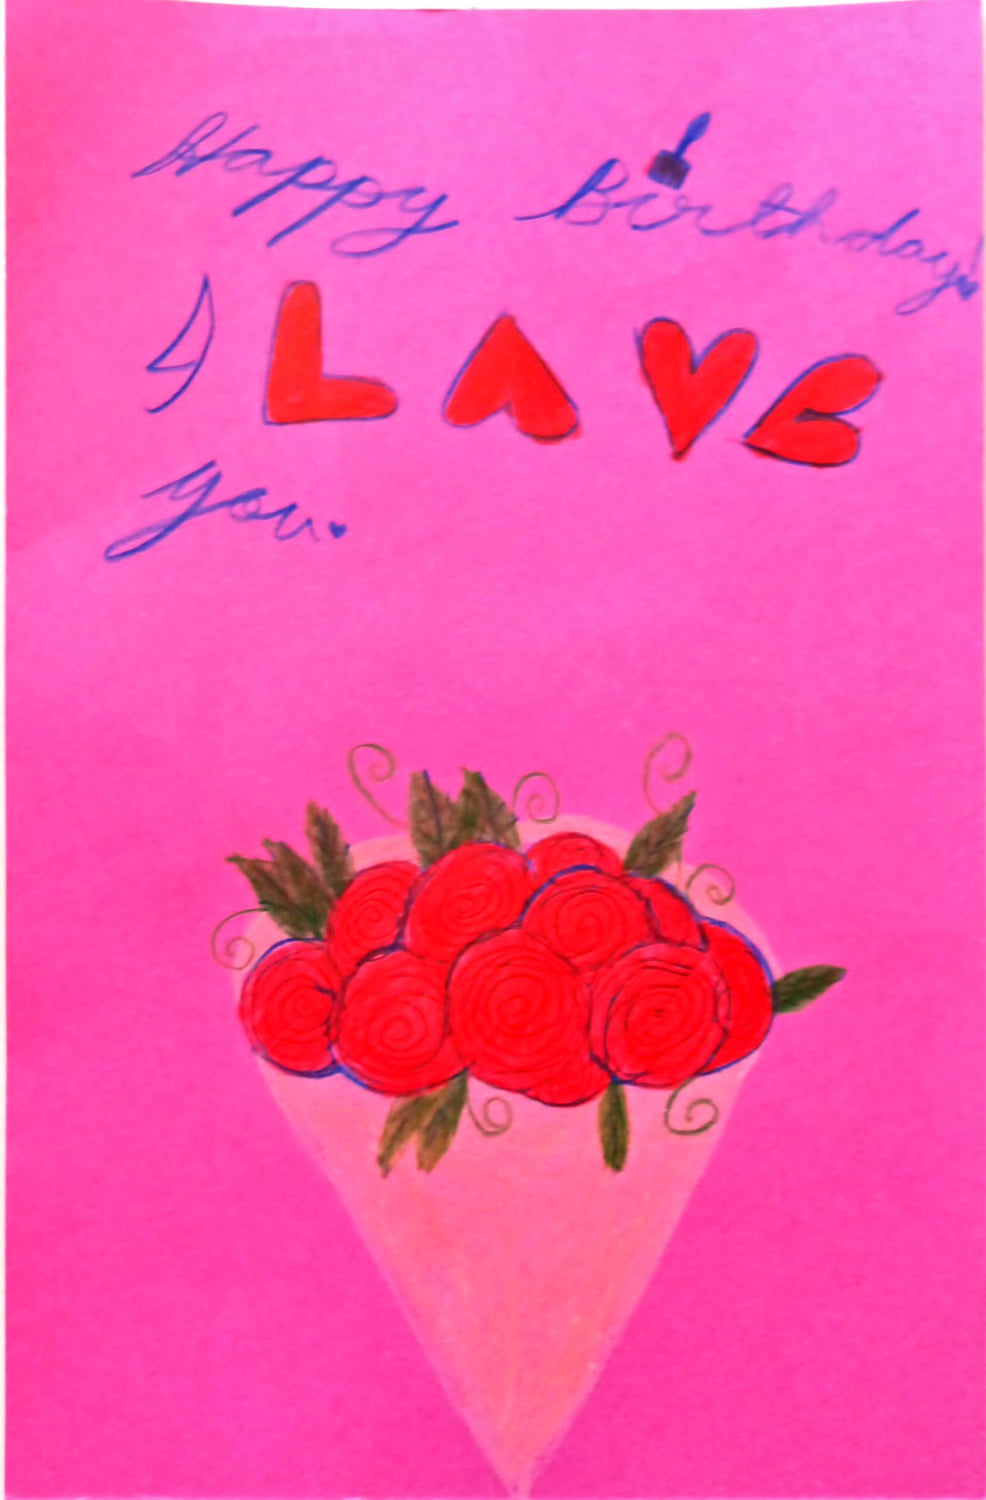 Happy Birthday!
I LOVE
you.